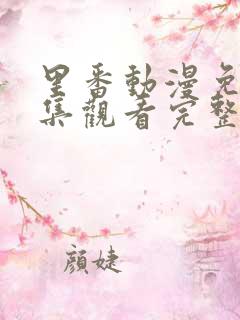 里番動漫免
集觀看完整
顏婕